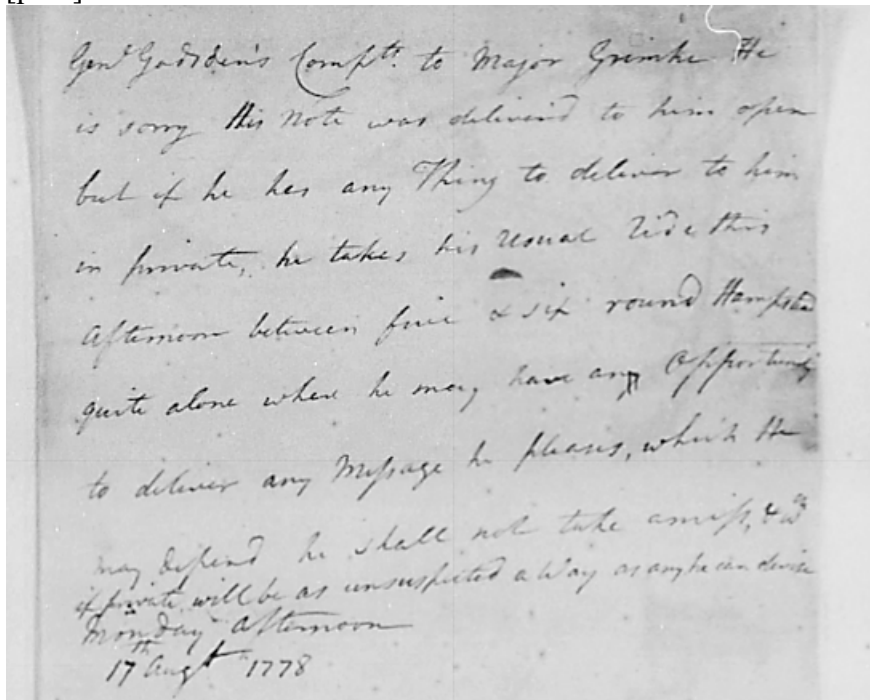 Genl Gadsden's Complts. to Major Grimke He
is sorry this Note was deliverd to him open
but if he has any Thing to deliver to him
in private, he takes his usual Ride this
afternoon between five & six round Hampsted
quite alone where he may have any Opportunity
to deliver any Message he pleases, which He
may depend he shall not take amiss, &
if private will be as unsuspected a Way as any he can devise
Monday afternoon
17th Augt 1778